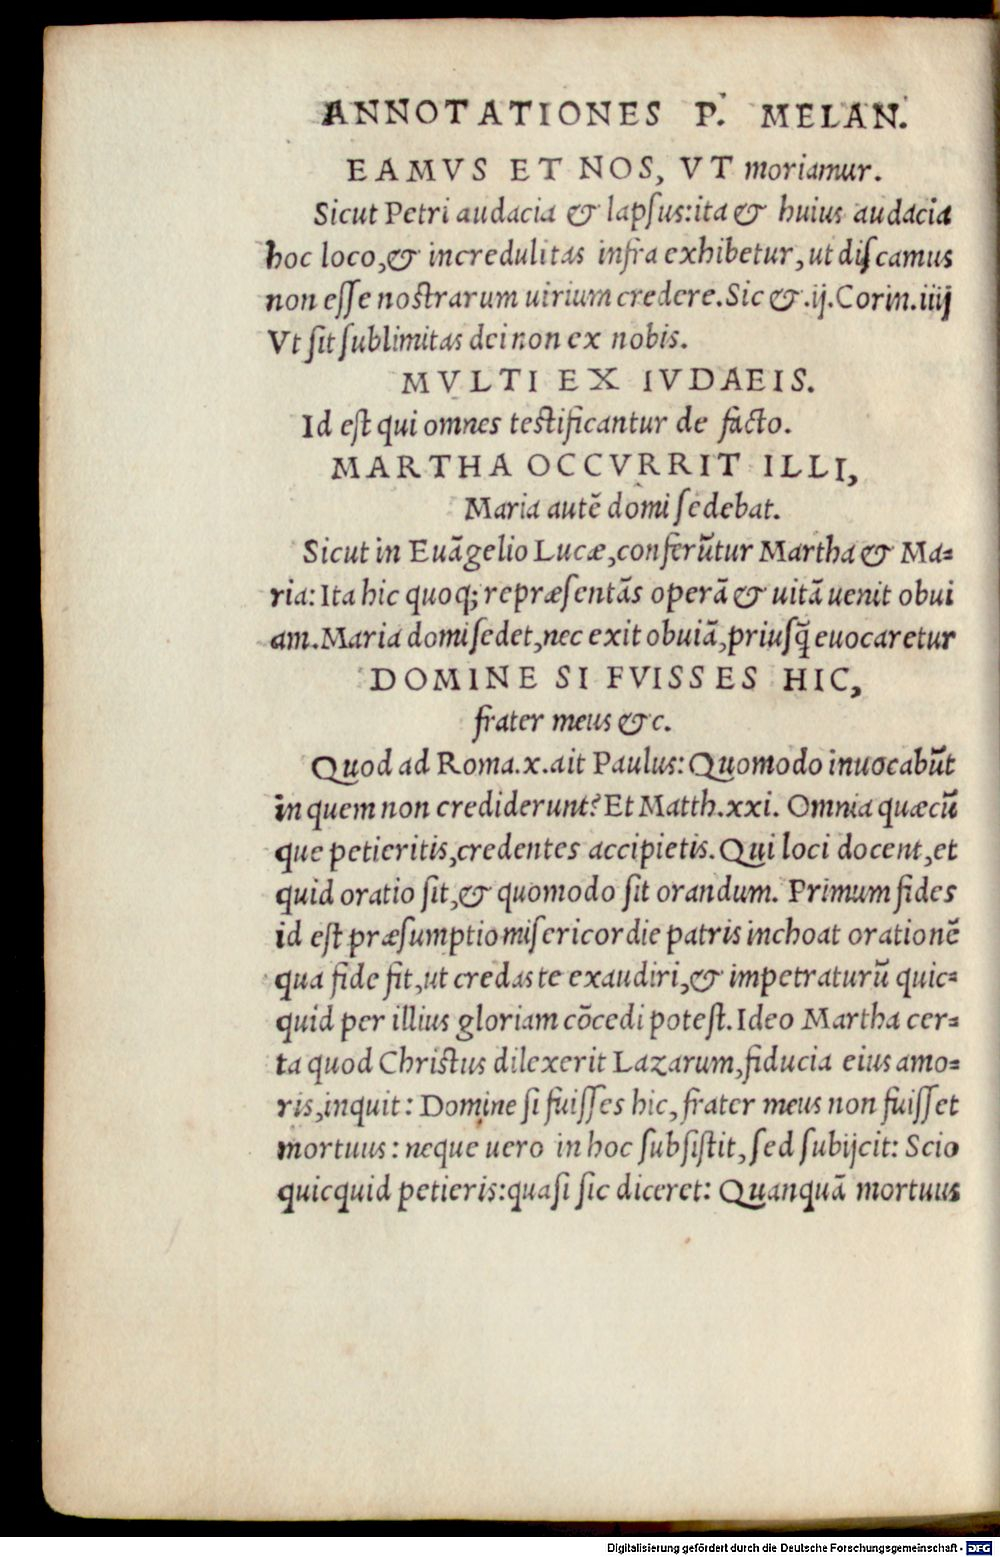 ANNOTATIONES P. MELAN.
EAMVS ET NOS, VT moriamur.
Sicut Petri audacia & lapſus:ita & huius audacia
hoc loco,& incredulitas infra exhibetur, ut diſcamus
non eſſe noſtrarum uirium credere. Sic & .ij. Corin.iiij
Vt ſit ſublimitas dei non ex nobis.
MVLTI EX IVDAEIS.
Id eſt qui omnes teſtificantur de facto.
MARTHA OCCVRRIT ILLI,
Maria autē domi ſedebat.
Sicut in Euāgelio Lucæ,conferūtur Martha & Ma=
ria: Ita hic quoq; repræſentās operā & uitā uenit obui
am. Maria domi ſedet,nec exit obuiā,priuſq̄ euocaretur
DOMINE SI FVISSES HIC,
frater meus &c.
Quod ad Roma.x.ait Paulus: Quomodo inuocabūt
in quem non crediderunt? Et Matth.xxi. Omnia quæcū
que petieritis,credentes accipietis. Qui loci docent,et
quid oratio ſit,& quomodo ſit orandum. Primum fides
id eſt præſumptio miſericordie patris inchoat orationē
qua fide fit,ut credas te exaudiri,& impetraturū quic=
quid per illius gloriam cōcedi poteſt. Ideo Martha cer=
ta quod Chriſtus dilexerit Lazarum,fiducia eius amo=
ris,inquit: Domine ſi fuiſſes hic, frater meus non fuiſſet
mortuus: neque uero in hoc ſubſiſtit, ſed ſubijcit: Scio
quicquid petieris:quaſi ſic diceret: Quanquā mortuus
Digitalisierung gefördert durch die Deutsche Forschungsgemeinschaft - DFG